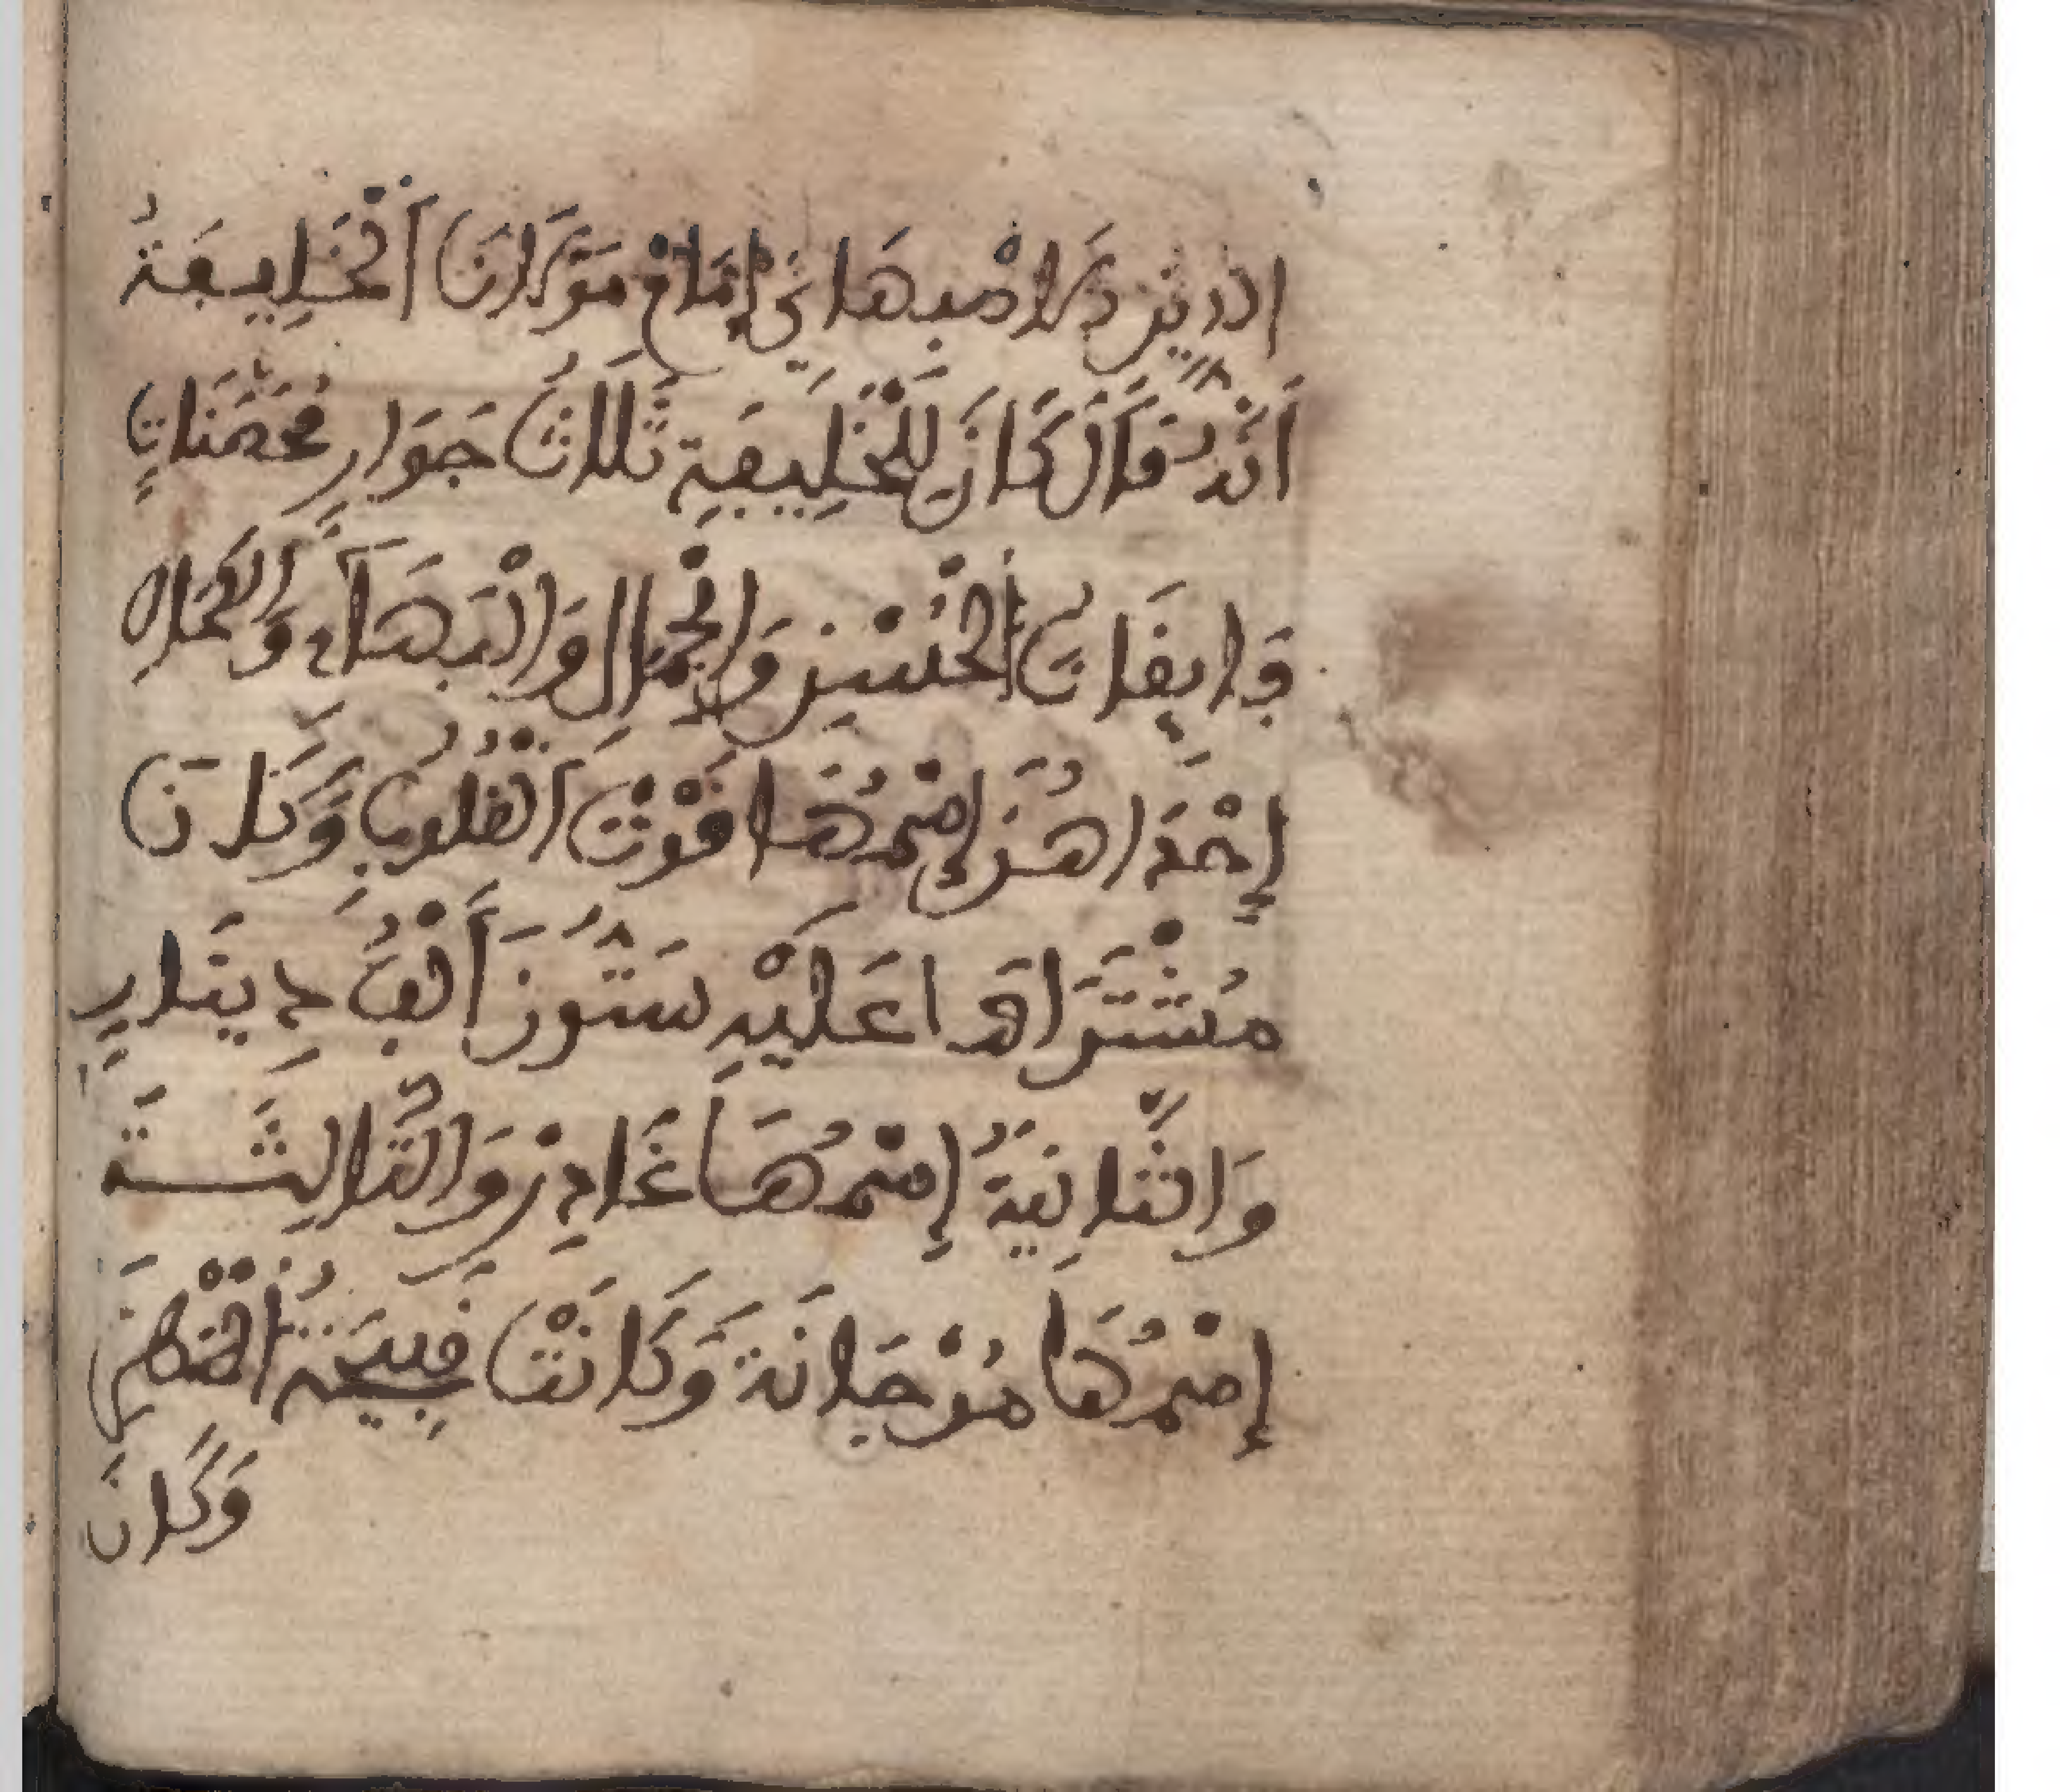 الدين الاصبهاني إمام مولانا الخليفة
أنه قال كان للخليفة ثلاث جوار محصنات
فايقات الحسن والجمال والبهاء والكمال
إحداهن إسمها قوت القلوب وكان
مشتراها عليه ستون ألف دينار
والثانية إسمها غادر والثالثة
إسمها مرجانة وكانت قبيحة
وكان